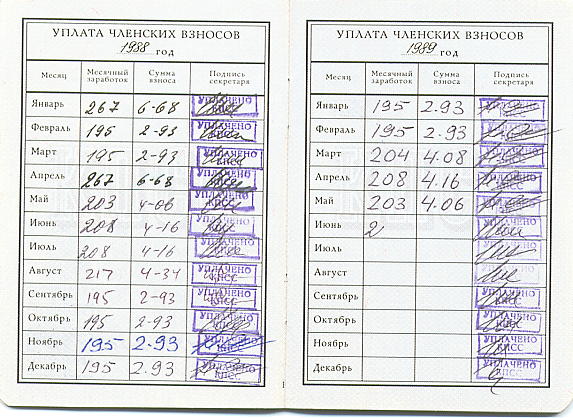 УПЛАТА ЧЛЕНСКИХ ВЗНОСОВ
1988 год
Месяц Месячный заработок Сумма взноса Подпись секретаря
Январь 267 6-68 УПЛАЧЕНО КПСС
Февраль 195 2-93 УПЛАЧЕНО КПСС
Март 195 2-93 УПЛАЧЕНО КПСС
Апрель 267 6-68 УПЛАЧЕНО КПСС
Май 203 4-06 УПЛАЧЕНО КПСС
Июнь 208 4-16 УПЛАЧЕНО КПСС
Июль 208 4-16 УПЛАЧЕНО КПСС
Август 217 4-34 УПЛАЧЕНО КПСС
Сентябрь 195 2-93 УПЛАЧЕНО КПСС
Октябрь 195 2-93 УПЛАЧЕНО КПСС
Ноябрь 195 2.93 УПЛАЧЕНО КПСС
Декабрь 195 2.93 УПЛАЧЕНО КПСС
УПЛАТА ЧЛЕНСКИХ ВЗНОСОВ
1989 год
Месяц Месячный заработок Сумма взноса Подпись секретаря
Январь 195 2.93 УПЛАЧЕНО КПСС
Февраль 195 2.93 УПЛАЧЕНО КПСС
Март 204 4.08 УПЛАЧЕНО КПСС
Апрель 208 4.16 УПЛАЧЕНО КПСС
Май 203 4.06 УПЛАЧЕНО КПСС
Июнь 2 УПЛАЧЕНО КПСС
Июль УПЛАЧЕНО КПСС
Август УПЛАЧЕНО КПСС
Сентябрь УПЛАЧЕНО КПСС
Октябрь УПЛАЧЕНО КПСС
Ноябрь УПЛАЧЕНО КПСС
Декабрь УПЛАЧЕНО КПСС